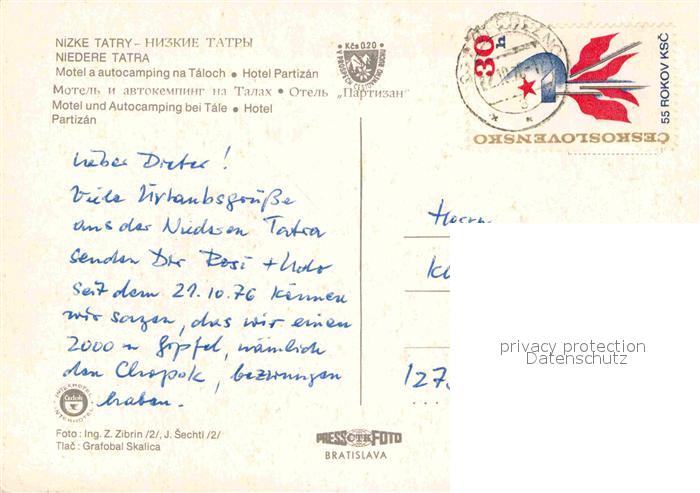 NIZKE TATRY – НИЗКИЕ ТАТРЫ
NIEDERE TATRA
Motel a autocamping na Táloch • Hotel Partizán
Мотель и автокемпинг на Талах • Отель „Партизан"
Motel und Autocamping bei Tále • Hotel
Partizán
Kčs 0,20
30 h
55 ROKOV KSČ
ČESKOSLOVENSKO
Lieber Dieter!
Viele Urlaubsgrüße
aus der Niederen Tatra
senden Dir Rosi + Udo
Seit dem 21.10.76 können
wir sagen, das wir einen
2000 m Gipfel, nämlich
den Chopok, bezwungen
haben.
Herrn
127
privacy protection
Datenschutz
INTERHOTEL
Čedok
INTERHOTEL
Foto: Ing. Z. Zibrin /2/, J. Šechtl /2/
Tlač: Grafobal Skalica
PRESS ČTK FOTO
BRATISLAVA